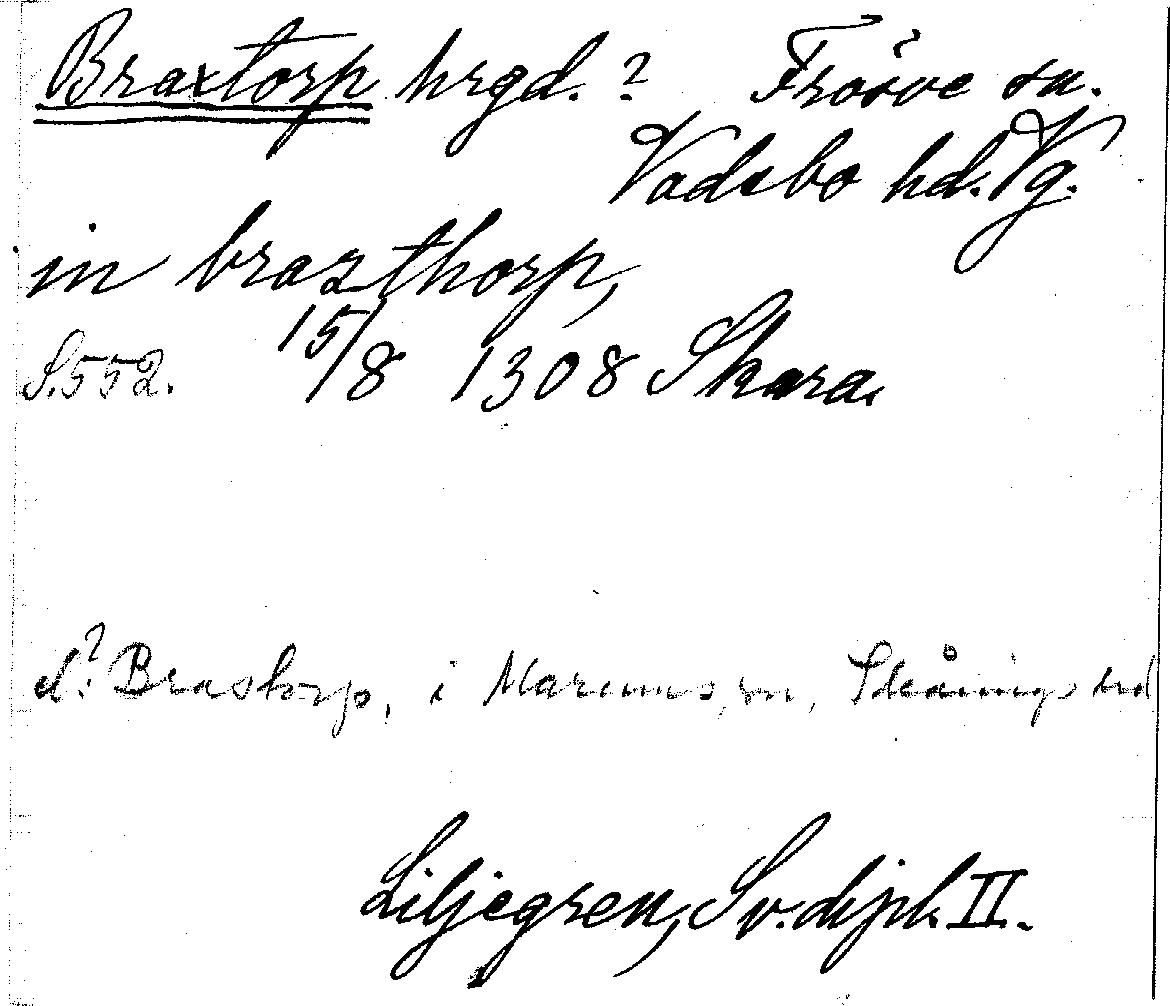 Braxtorp hrgd. ? Fröive sn.
Vadsbo hd. Vg.
in braxthorp,
S. 552. 15/8 1308 Skara.
? Brastorp, i Marums sn, Skånings hd
Liljegren, Sv. dipl. II.